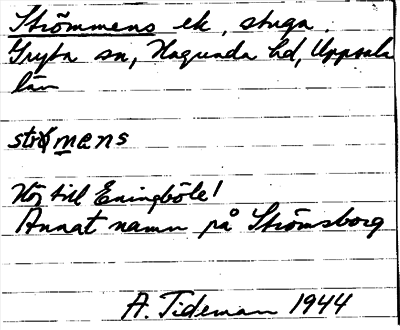 Strömmens ek, stuga.
Gryta sn, Hagunda hd, Uppsala
län
strömens
Hör till Eningböle!
Annat namn på Strömsborg
A. Tideman 1944